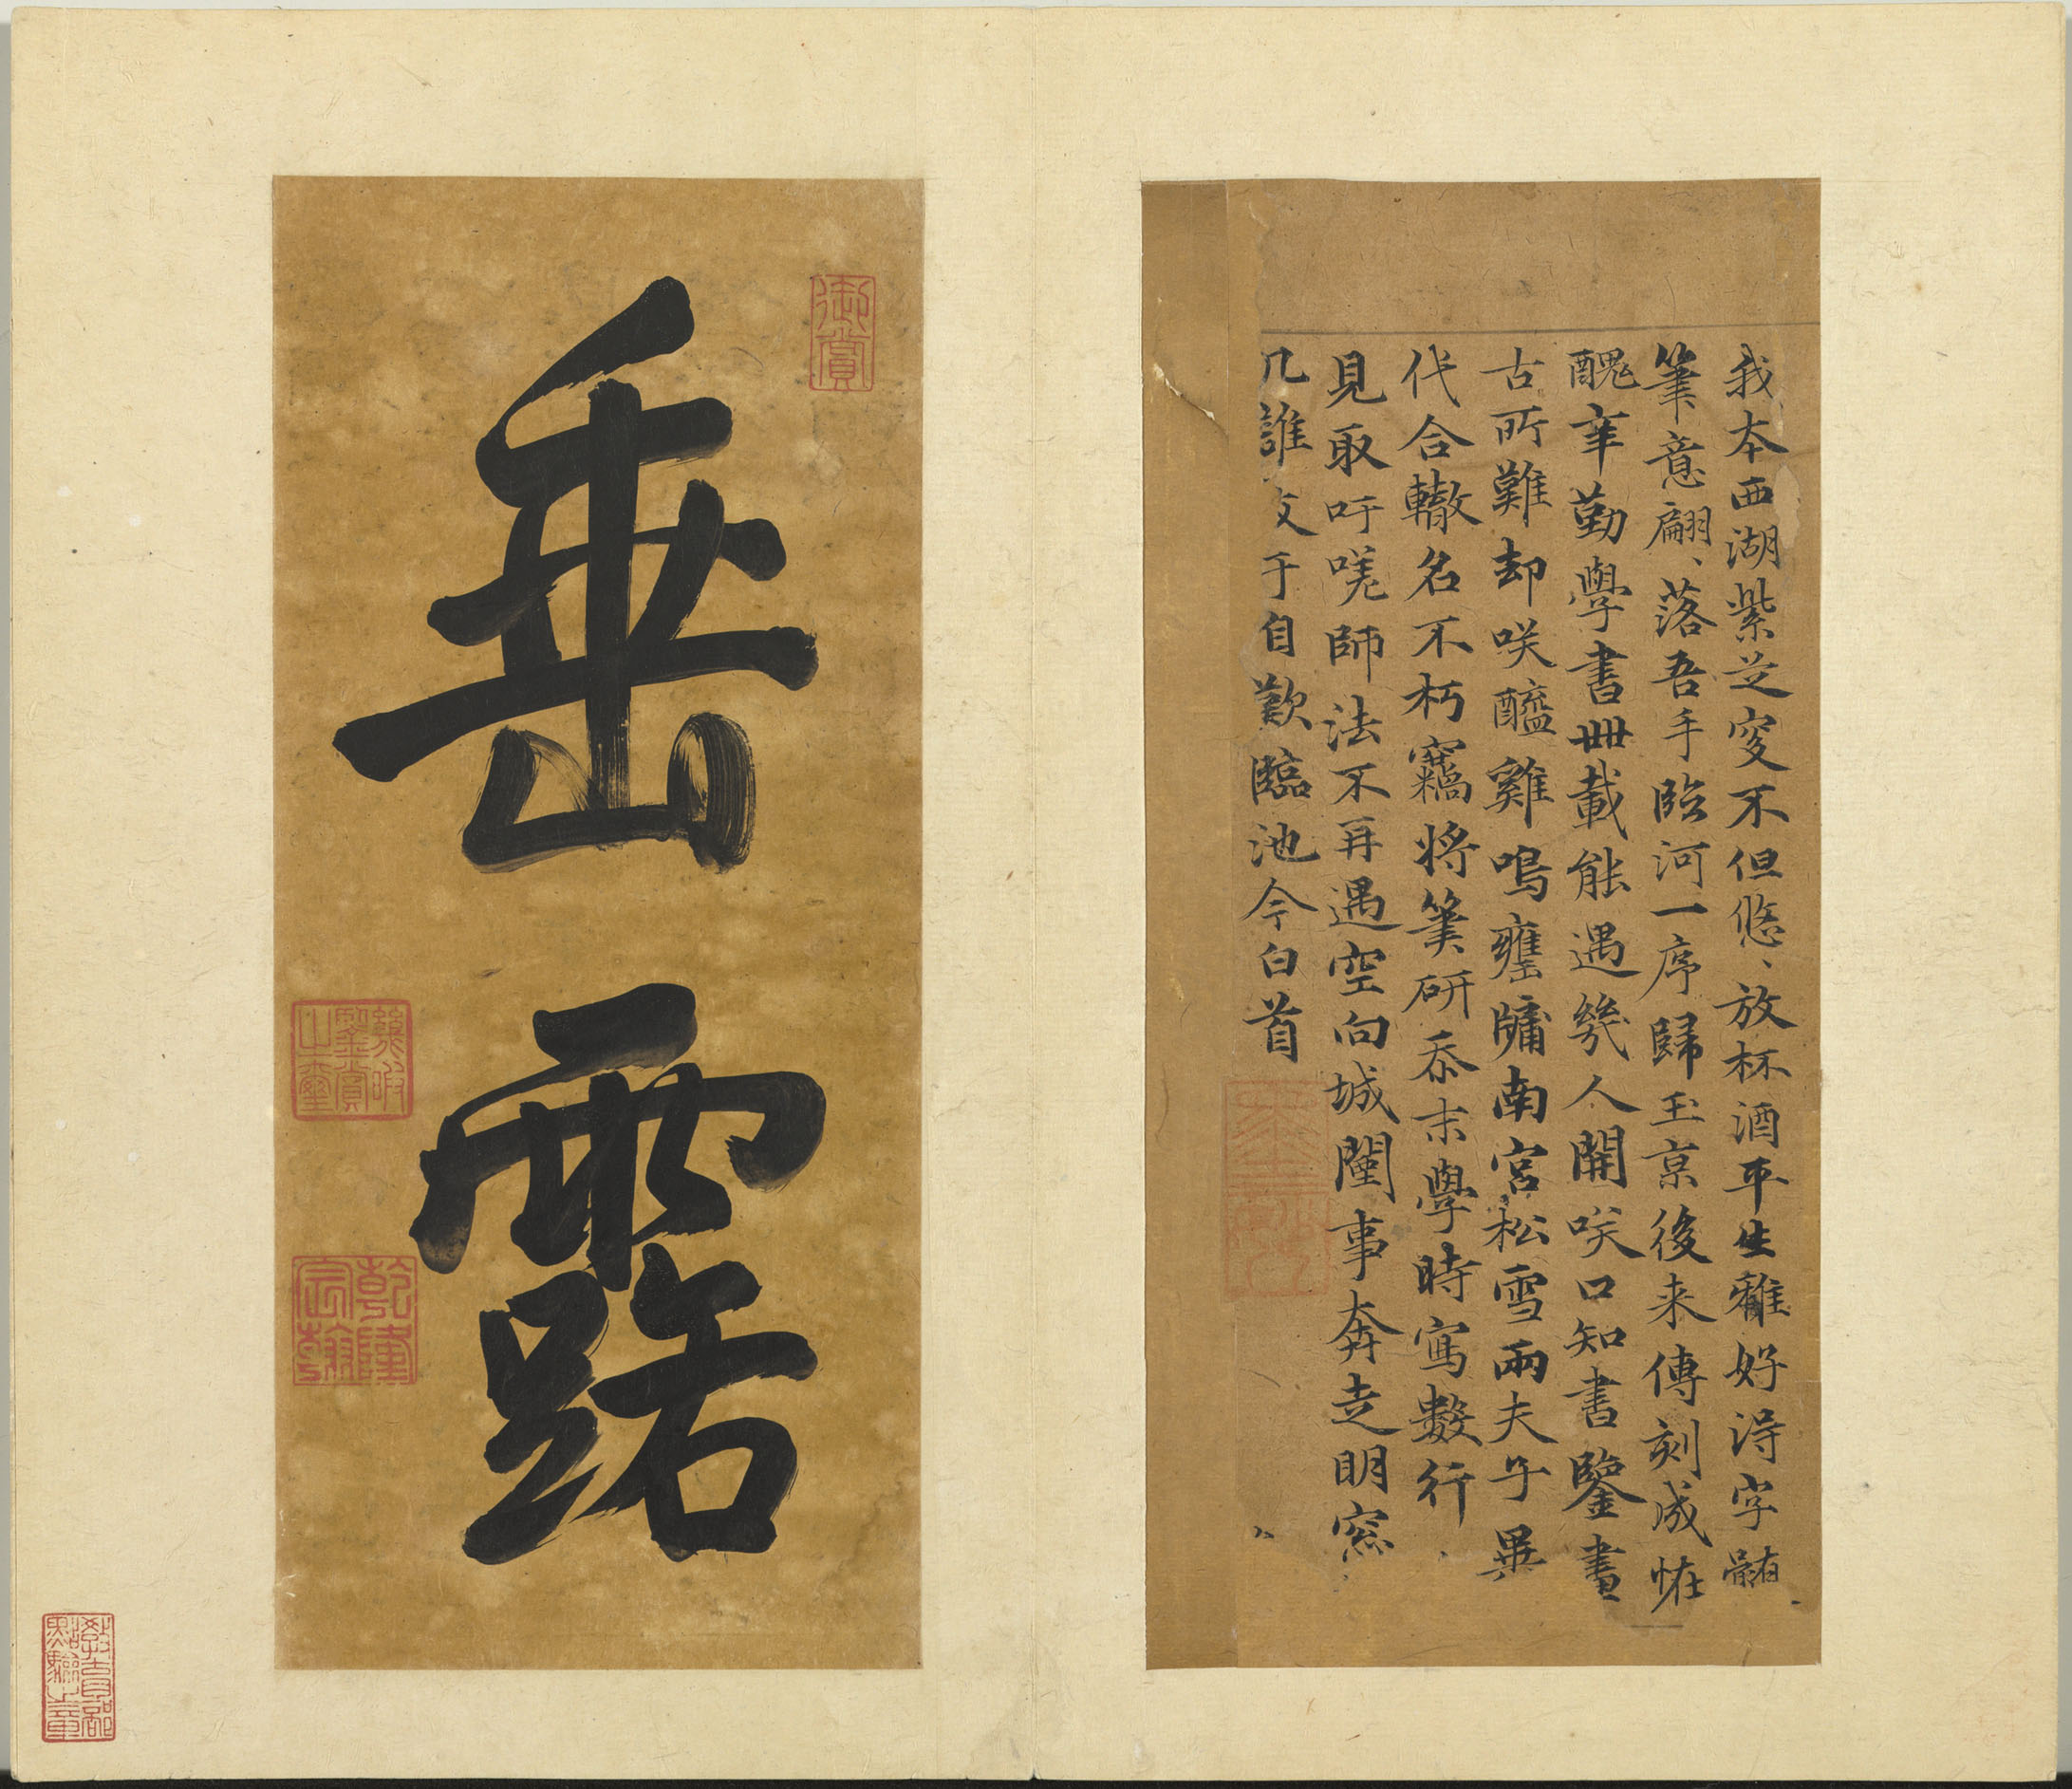 我本西湖紫芝叟不但悠、放杯酒平生雖好得字髓
筆意翩、落吾手臨河一序歸玉京後来傳刻成恠
醜辛勤學書卌載能遇幾人開咲口知書鑒書
古所難却咲醯雞鳴甕牖南宮松雪兩夫子異
代合轍名不朽竊將筆研忝末學時寫數行
見取吁嗟師法不再遇空向城闉事奔走明窓
几誰 于自歎臨池今白首
垂露
御賞
乾隆宸翰
教育部點驗之章